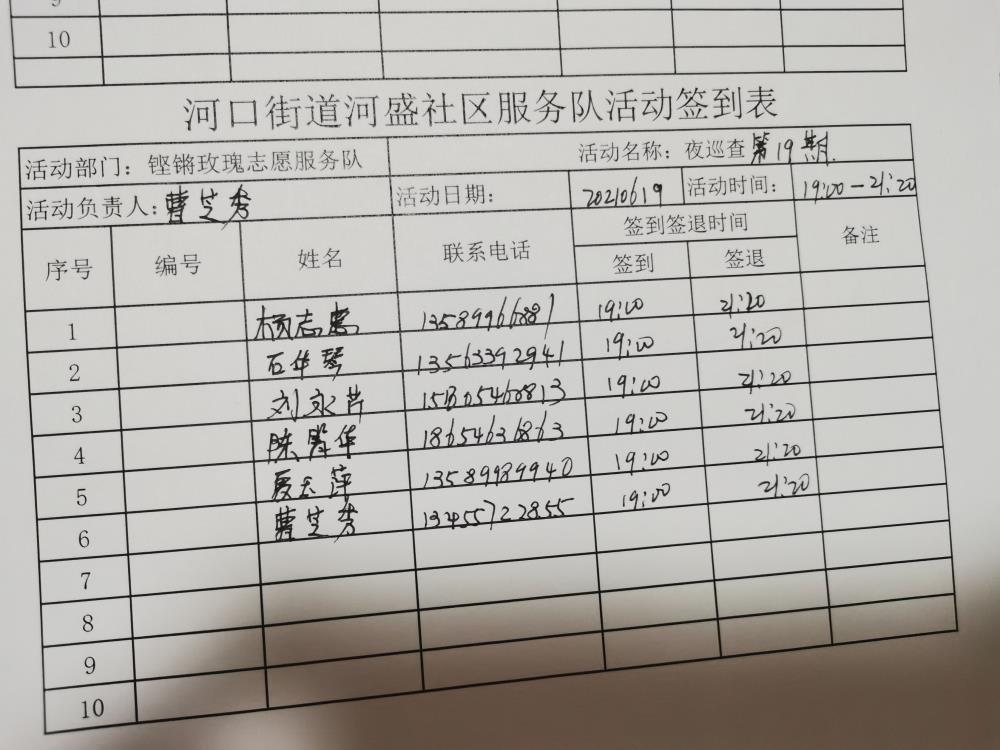 9
10
河口街道河盛社区服务队活动签到表
活动部门：铿锵玫瑰志愿服务队 活动名称：夜巡查第19期
活动负责人：曹芝秀 活动日期： 20210619 活动时间： 19:00-21:20
序号 编号 姓名 联系电话 签到签退时间 备注
签到 签退
1 杨志惠 13589966881 19:00 21:20
2 石华琴 13563392941 19:00 21:20
3 刘永芹 19:00 21:20
4 18654631863 19:00 21:20
5 13589989940 19:00 21:20
6 曹芝秀 13455722855 19:00 21:20
7
8
9
10